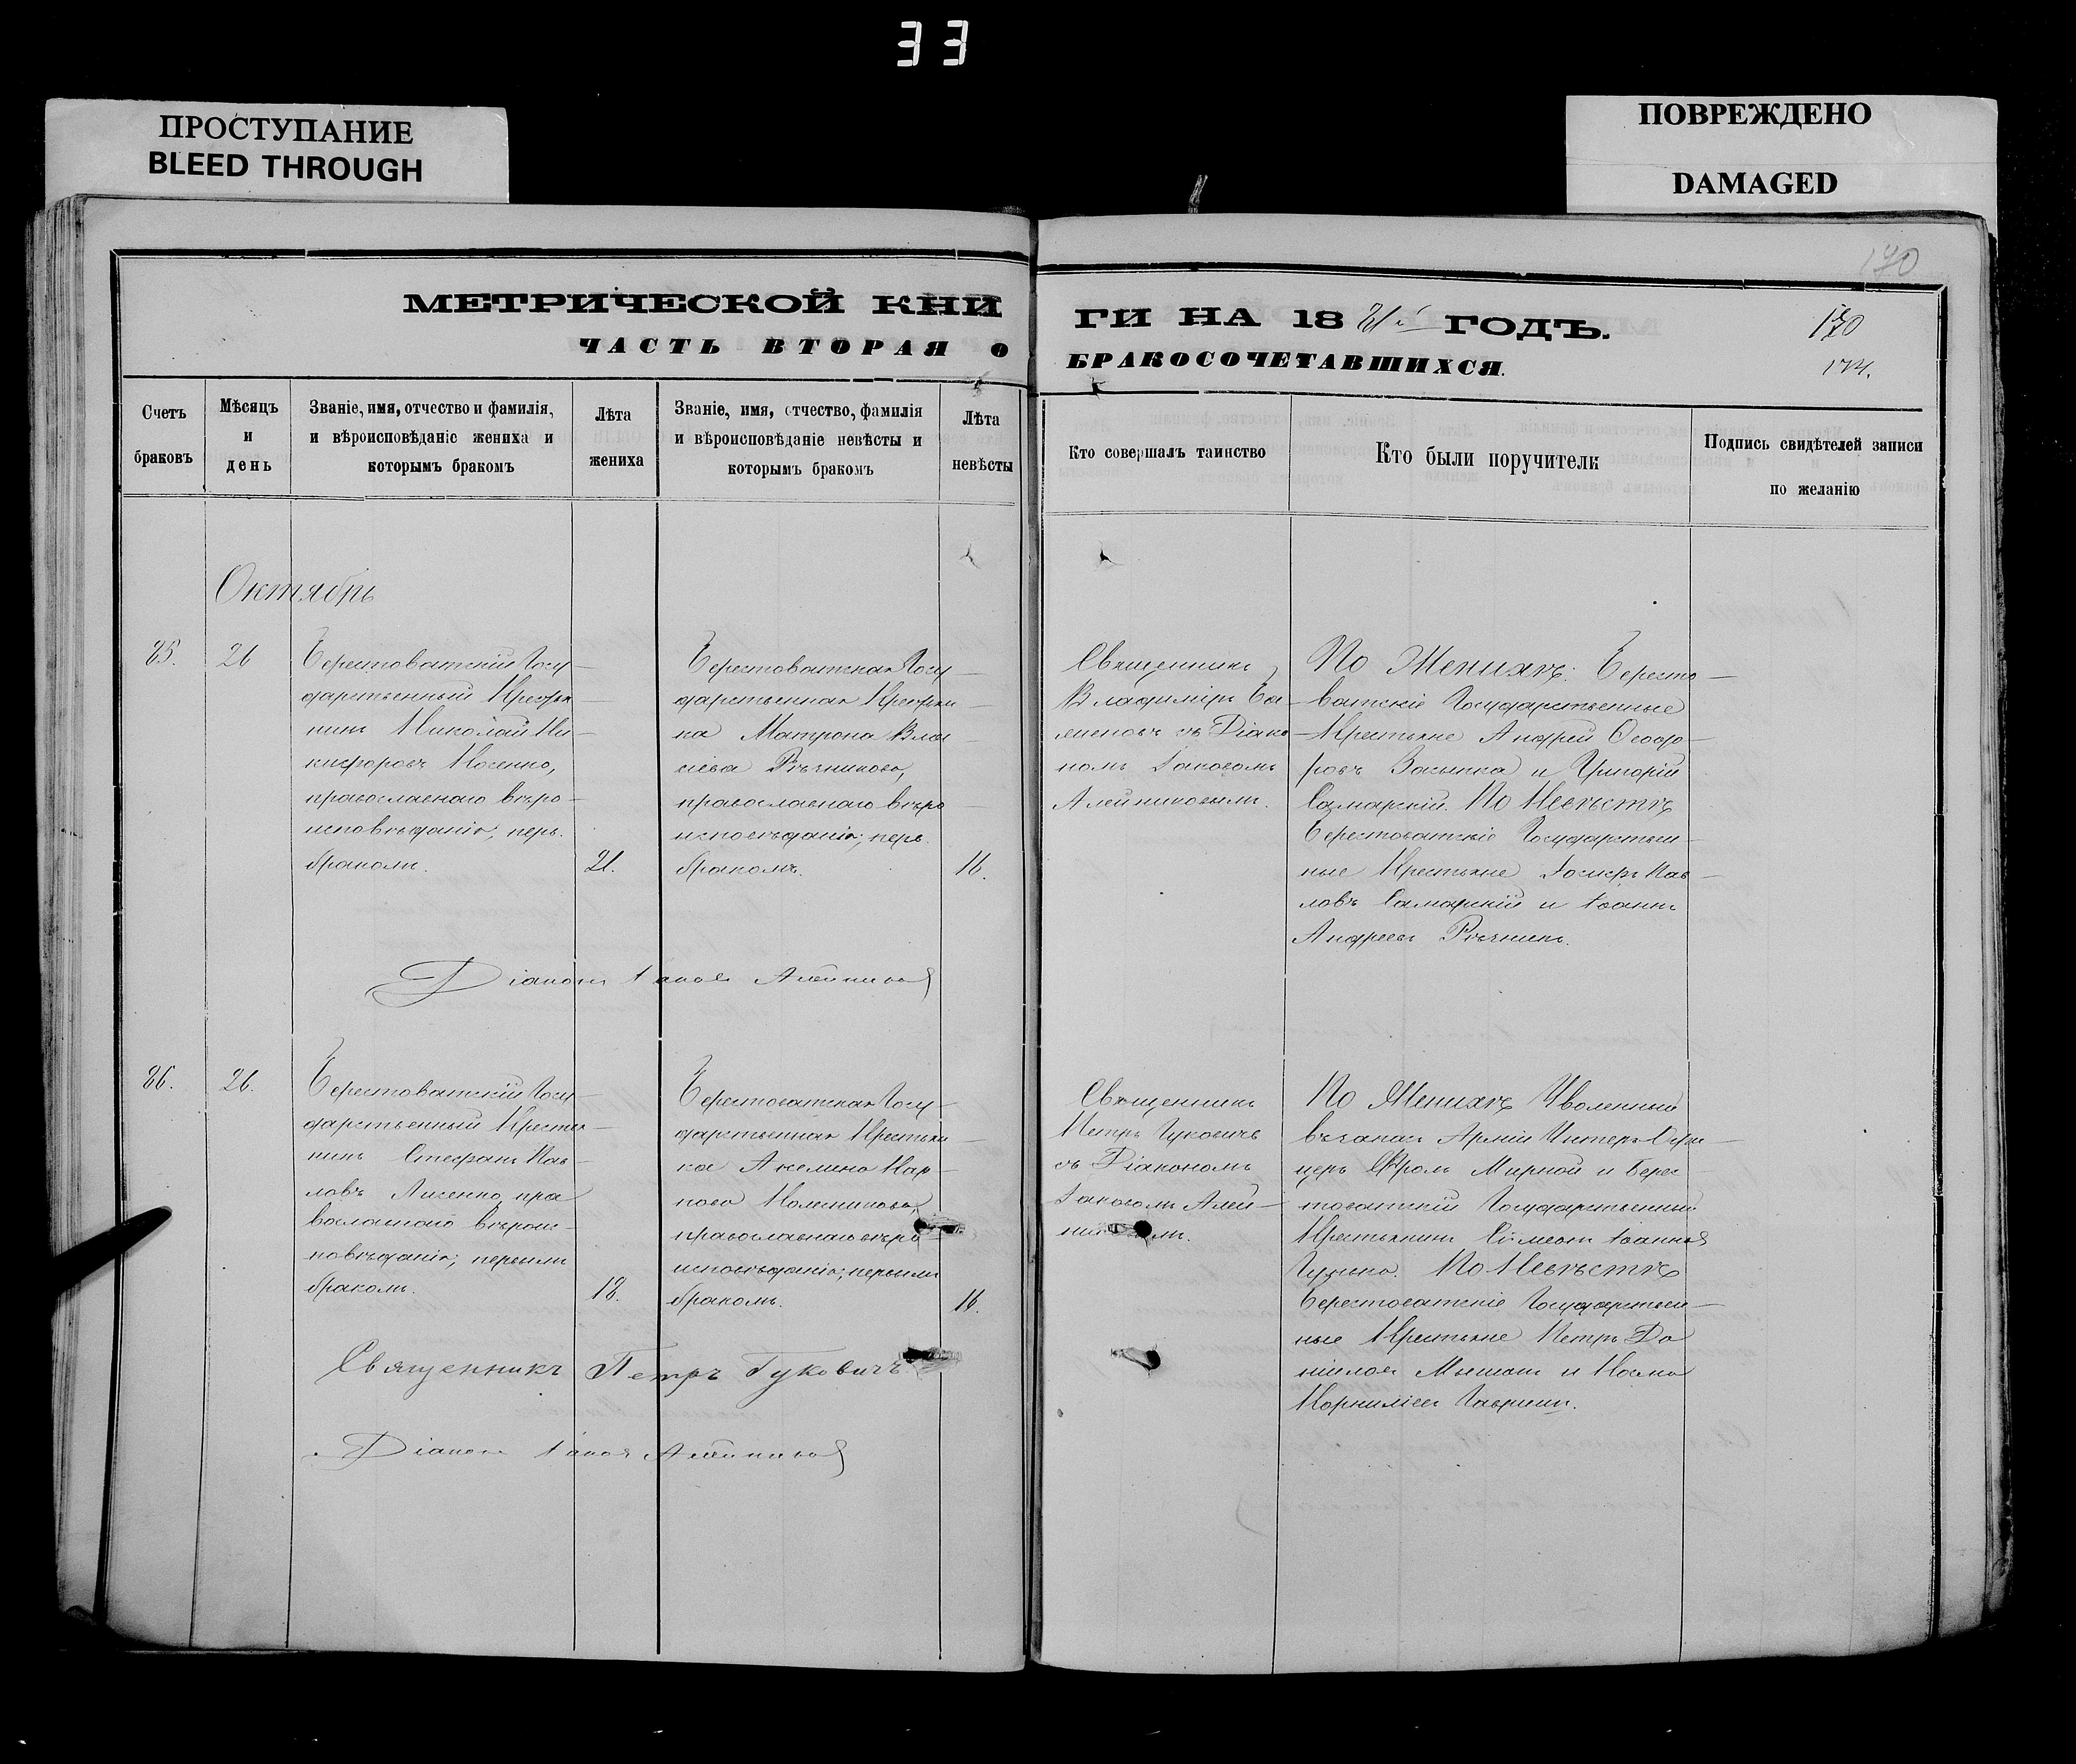 33
ПРОСТУПАНИЕ
BLEED THROUGH
ПОВРЕЖДЕНО
DAMAGED
170
МЕТРИЧЕСКОЙ КНИ
ГИ НА 1881й ГОДЪ.
170
174.
ЧАСТЬ ВТОРАЯ О
БРАКОСОЧЕТАВШИХСЯ.
Счетъ
браковъ
Мѣсяцъ
и
день
Званіе, имя, отчество и фамилія,
и вѣроисповѣданіе жениха и
которымъ бракомъ
Лѣта
жениха
Званіе, имя, отчество, фамилія
и вѣроисповѣданіе невѣсты и
которымъ бракомъ
Лѣта
невѣсты
Кто совершалъ таинство
Кто были поручители
Подпись свидѣтелей записи
по желанію
Октябрь
85.
26
Берестоватскій Госу-
дарственный Крестья-
нинъ Николай Ни-
кифоровъ Мосенко,
православнаго вѣро-
исповѣданія; перв.
бракомъ.
21.
Берестоватская Госу-
дарственная Крестьян-
ка Матрона Вла-
сіева Рѣзникова,
православнаго вѣро-
исповѣданія; перв.
бракомъ.
16.
Священникъ
Владиміръ Ба-
женовъ съ Діако-
номъ Іаковомъ
Алейниковымъ.
По Женихѣ: Бересто-
ватскіе Государственные
Крестьяне Андрей Ѳеодо-
ровъ и Григорій
Самарскій. По Невѣстѣ
Берестоватскіе Государствен-
ные Крестьяне Іосифъ Пав-
ловъ Самарскій и Іоаннъ
Андреевъ Рѣзникъ.
Діаконъ Іаковъ Алейниковъ
86.
26.
Берестоватскій Госу-
дарственный Крестья-
нинъ Стефанъ Пав-
ловъ Лисенко, пра-
вославнаго вѣроис-
повѣданія; первымъ
бракомъ.
18.
Берестоватская Госу-
дарственная Крестьян-
ка Акелина Кар-
пова
православнаго вѣро-
исповѣданія; первымъ
бракомъ.
16.
Священникъ
Петръ Гуковичъ
съ Діакономъ
Іаковомъ Алей-
никовымъ.
По Женихѣ Уволенный
въ запас Арміи Унтеръ-Офи-
церъ Мирной и Берес-
товатскій Государственный
Крестьянинъ Сімеонъ Іоанновъ
По Невѣстѣ
Берестоватскіе Государствен-
ные Крестьяне Петръ Да-
ніиловъ и Козма
Корниліевъ
Священникъ Петръ Гуковичъ
Діаконъ Іаковъ Алейниковъ